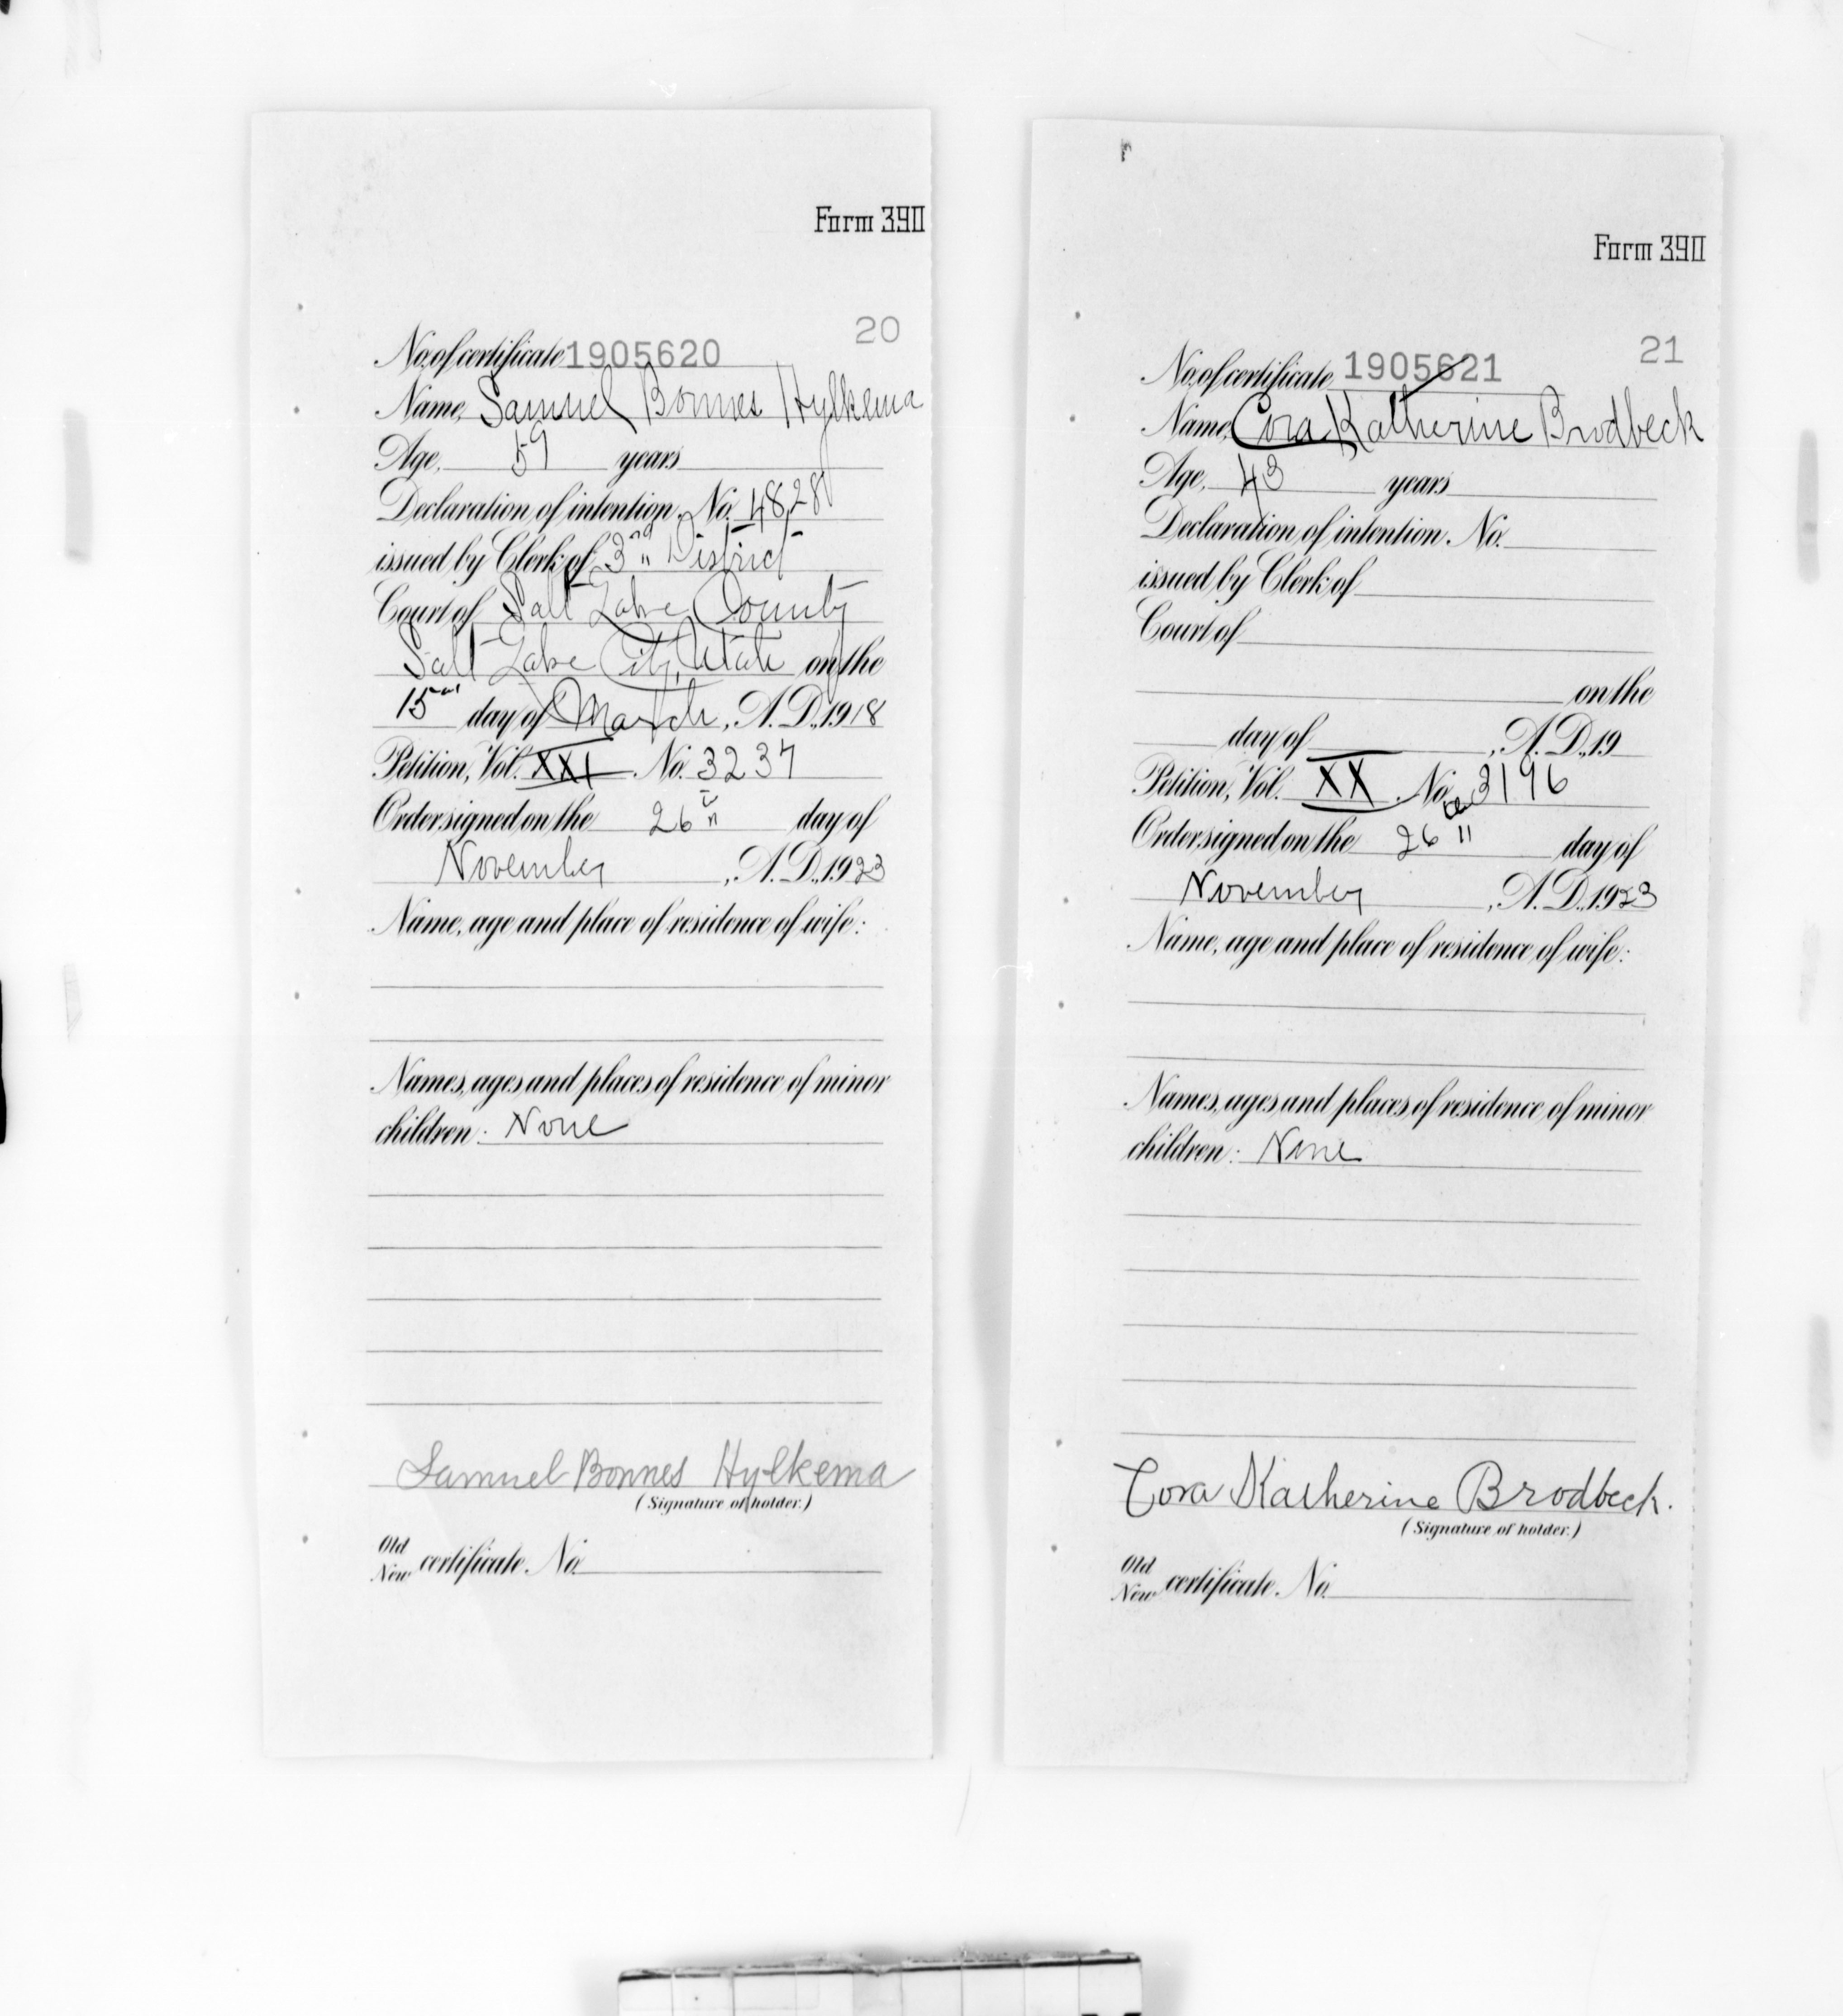 Form 390
20
No. of certificate 1905620
Name, Samuel Bonnes Hylkema
Age, 59 years
Declaration of intention, No. 4828
issued by Clerk of 3rd District
Court of Salt Lake County
Salt Lake City, Utah on the
15th day of March, A.D., 1918
Petition, Vol. XXI No. 3237
Order signed on the 26th day of
November, A.D., 1923
Name, age and place of residence of wife:
Names, ages and places of residence of minor
children: None
Samuel Bonnes Hylkema
(Signature of holder.)
Old
New certificate. No.
Form 390
21
No. of certificate, 1905621
Name, Cora Katherine Brodbeck
Age, 43 years
Declaration of intention. No.
issued by Clerk of
Court of
on the
day of , A.D., 19
Petition, Vol. XX. No. 3196
Order signed on the 26 day of
November, A.D., 1923
Name, age and place of residence of wife:
Names, ages and places of residence of minor
children: None
Cora Katherine Brodbeck.
(Signature of holder.)
Old
New certificate. No.